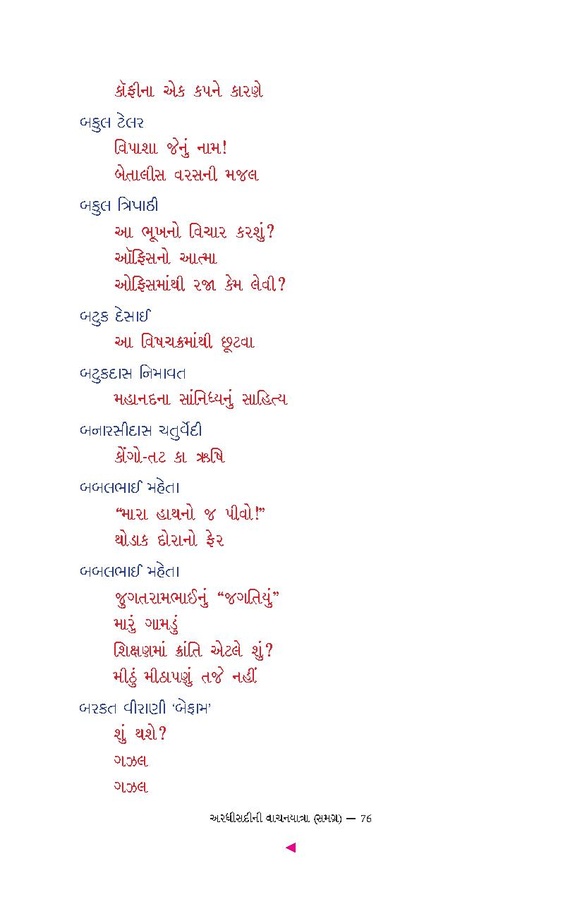 કૉફીના એક કપને કારણે
બકુલ ટેલર
વિપાશા જેનું નામ!
બેતાલીસ વરસની મજલ
બકુલ ત્રિપાઠી
આ ભૂખનો વિચાર કરશું?
ઑફિસનો આત્મા
ઓફિસમાંથી રજા કેમ લેવી?
બટુક દેસાઈ
આ વિષચક્રમાંથી છૂટવા
બટુકદાસ નિમાવત
મહાનદના સાંનિધ્યનું સાહિત્ય
બનારસીદાસ ચતુર્વેદી
કોંગો-તટ કા ઋષિ
બબલભાઈ મહેતા
“મારા હાથનો જ પીવો!”
થોડાક દોરાનો ફેર
બબલભાઈ મહેતા
જુગતરામભાઈનું “જગતિયું”
મારું ગામડું
શિક્ષણમાં ક્રાંતિ એટલે શું?
મીઠું મીઠાપણું તજે નહીં
બરકત વીરાણી ‘બેફામ’
શું થશે?
ગઝલ
ગઝલ
અરધીસદીની વાચનયાત્રા (સમગ્ર) — 76